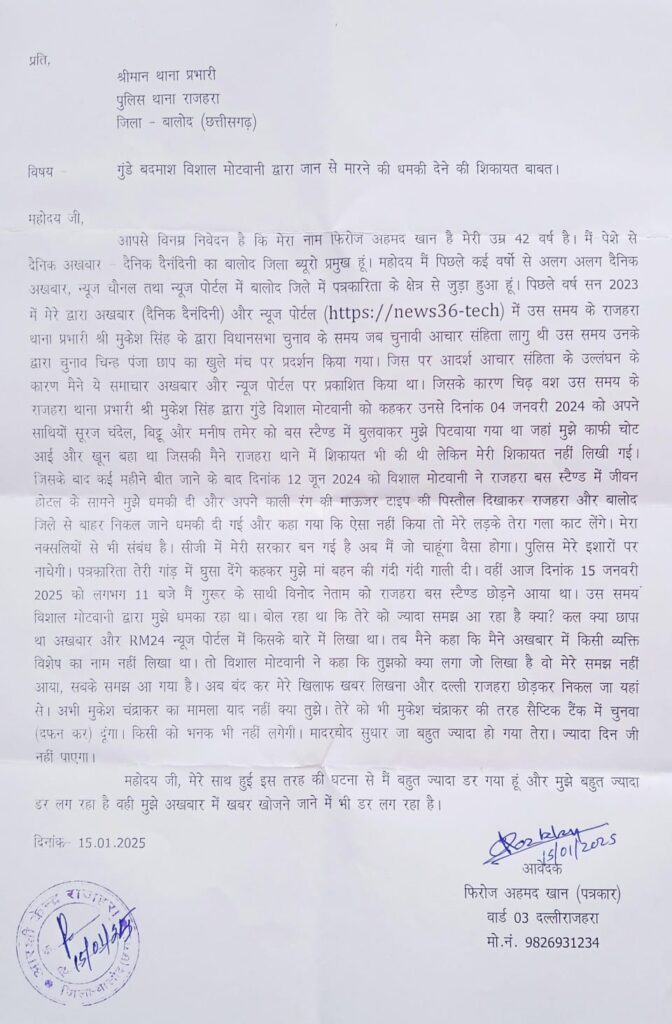 प्रति,
श्रीमान थाना प्रभारी
पुलिस थाना राजहरा
जिला – बालोद (छत्तीसगढ़)
विषय – गुंडे बदमाश विशाल मोटवानी द्वारा जान से मारने की धमकी देने की शिकायत बाबत।
महोदय जी,
आपसे विनम्र निवेदन है कि मेरा नाम फिरोज अहमद खान है मेरी उम्र 42 वर्ष है। मैं पेशे से
दैनिक अखबार – दैनिक दैनंदिनी का बालोद जिला ब्यूरो प्रमुख हूं। महोदय मैं पिछले कई वर्षो से अलग अलग दैनिक
अखबार, न्यूज चौनल तथा न्यूज पोर्टल में बालोद जिले में पत्रकारिता के क्षेत्र से जुड़ा हुआ हूं। पिछले वर्ष सन 2023
में मेरे द्वारा अखबार (दैनिक दैनंदिनी) और न्यूज पोर्टल (https://news36-tech) में उस समय के राजहरा
थाना प्रभारी श्री मुकेश सिंह के द्वारा विधानसभा चुनाव के समय जब चुनावी आचार संहिता लागु थी उस समय उनके
द्वारा चुनाव चिन्ह पंजा छाप का खुले मंच पर प्रदर्शन किया गया। जिस पर आदर्श आचार संहिता के उल्लंघन के
कारण मैने ये समाचार अखबार और न्यूज पोर्टल पर प्रकाशित किया था। जिसके कारण चिढ़ वश उस समय के
राजहरा थाना प्रभारी श्री मुकेश सिंह द्वारा गुंडे विशाल मोटवानी को कहकर उनसे दिनांक 04 जनवरी 2024 को अपने
साथियों सूरज चंदेल, विट्टू और मनीष तमेर को बस स्टैण्ड में बुलवाकर मुझे पिटवाया गया था जहां मुझे काफी चोट
आई और खून बहा था जिसकी मैने राजहरा थाने में शिकायत भी की थी लेकिन मेरी शिकायत नहीं लिखी गई।
जिसके बाद कई महीने बीत जाने के बाद दिनांक 12 जून 2024 को विशाल मोटवानी ने राजहरा बस स्टैण्ड में जीवन
होटल के सामने मुझे धमकी दी और अपने काली रंग की माऊजर टाइप की पिस्तौल दिखाकर राजहरा और बालोद
जिले से बाहर निकल जाने धमकी दी गई और कहा गया कि ऐसा नहीं किया तो मेरे लड़के तेरा गला काट लेंगे। मेरा
नक्सलियों से भी संबंध है। सीजी में मेरी सरकार बन गई है अब मैं जो चाहूंगा वैसा होगा। पुलिस मेरे इशारों पर
नाचेगी। पत्रकारिता तेरी गांड़ में घुसा देंगे कहकर मुझे मां बहन की गंदी गंदी गाली दी। वहीं आज दिनांक 15 जनवरी
2025 को लगभग 11 बजे मैं गुरूर के साथी विनोद नेताम को राजहरा बस स्टैण्ड छोड़ने आया था। उस समय
विशाल मोटवानी द्वारा मुझे धमका रहा था। बोल रहा था कि तेरे को ज्यादा समझ आ रहा है क्या? कल क्या छापा
था अखबार और RM24 न्यूज पोर्टल में किसके बारे में लिखा था। तब मैने कहा कि मैने अखबार में किसी व्यक्ति
विशेष का नाम नहीं लिखा था। तो विशाल मोटवानी ने कहा कि तुझको क्या लगा जो लिखा है वो मेरे समझ नहीं
आया, सबके समझ आ गया है। अब बंद कर मेरे खिलाफ खबर लिखना और दल्ली राजहरा छोड़कर निकल जा यहां
से। अभी मुकेश चंद्राकर का मामला याद नहीं क्या तुझे। तेरे को भी मुकेश चंद्राकर की तरह सैप्टिक टैंक में चुनवा
(दफन कर) दूंगा। किसी को भनक भी नहीं लगेगी। मादरचोद सुधार जा बहुत ज्यादा हो गया तेरा। ज्यादा दिन जी
नहीं पाएगा।
महोदय जी, मेरे साथ हुई इस तरह की घटना से मैं बहुत ज्यादा डर गया हूं और मुझे बहुत ज्यादा
डर लग रहा है वही मुझे अखबार में खबर खोजने जाने में भी डर लग रहा है।
दिनांक- 15.01.2025
15/01/2025
आवेदक
फिरोज अहमद खान (पत्रकार)
वार्ड 03 दल्लीराजहरा
मो.नं. 9826931234
आरक्षी केन्द्र राजहरा
15/01/25
जिला-बालोद (छ.ग.)